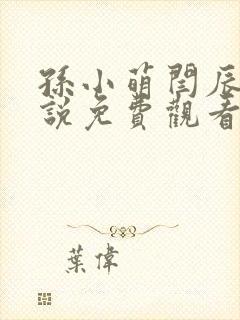 孫小萌閆辰
說免費觀看
葉偉